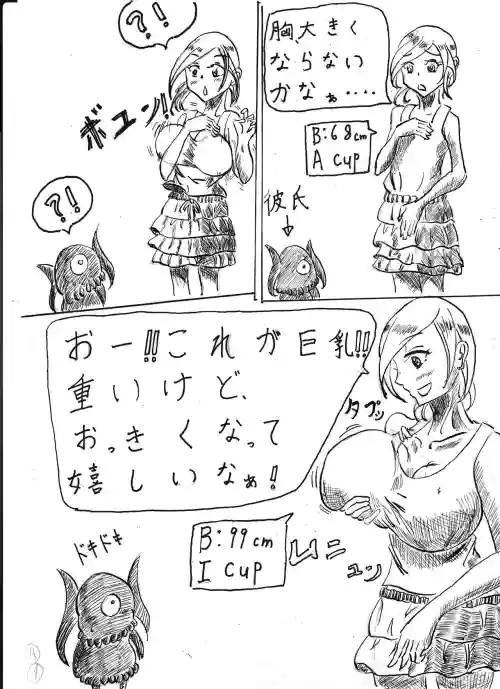 胸、大きく
ならない
かなぁ‥‥
B:68cm
A cup
彼氏
?!
ボユン!!
?!
おー!!これが巨乳!!
重いけど、
おっきくなって
嬉しいなぁ!
タプッ
B:99cm
I cup
ムニ
ユン
ドキドキ